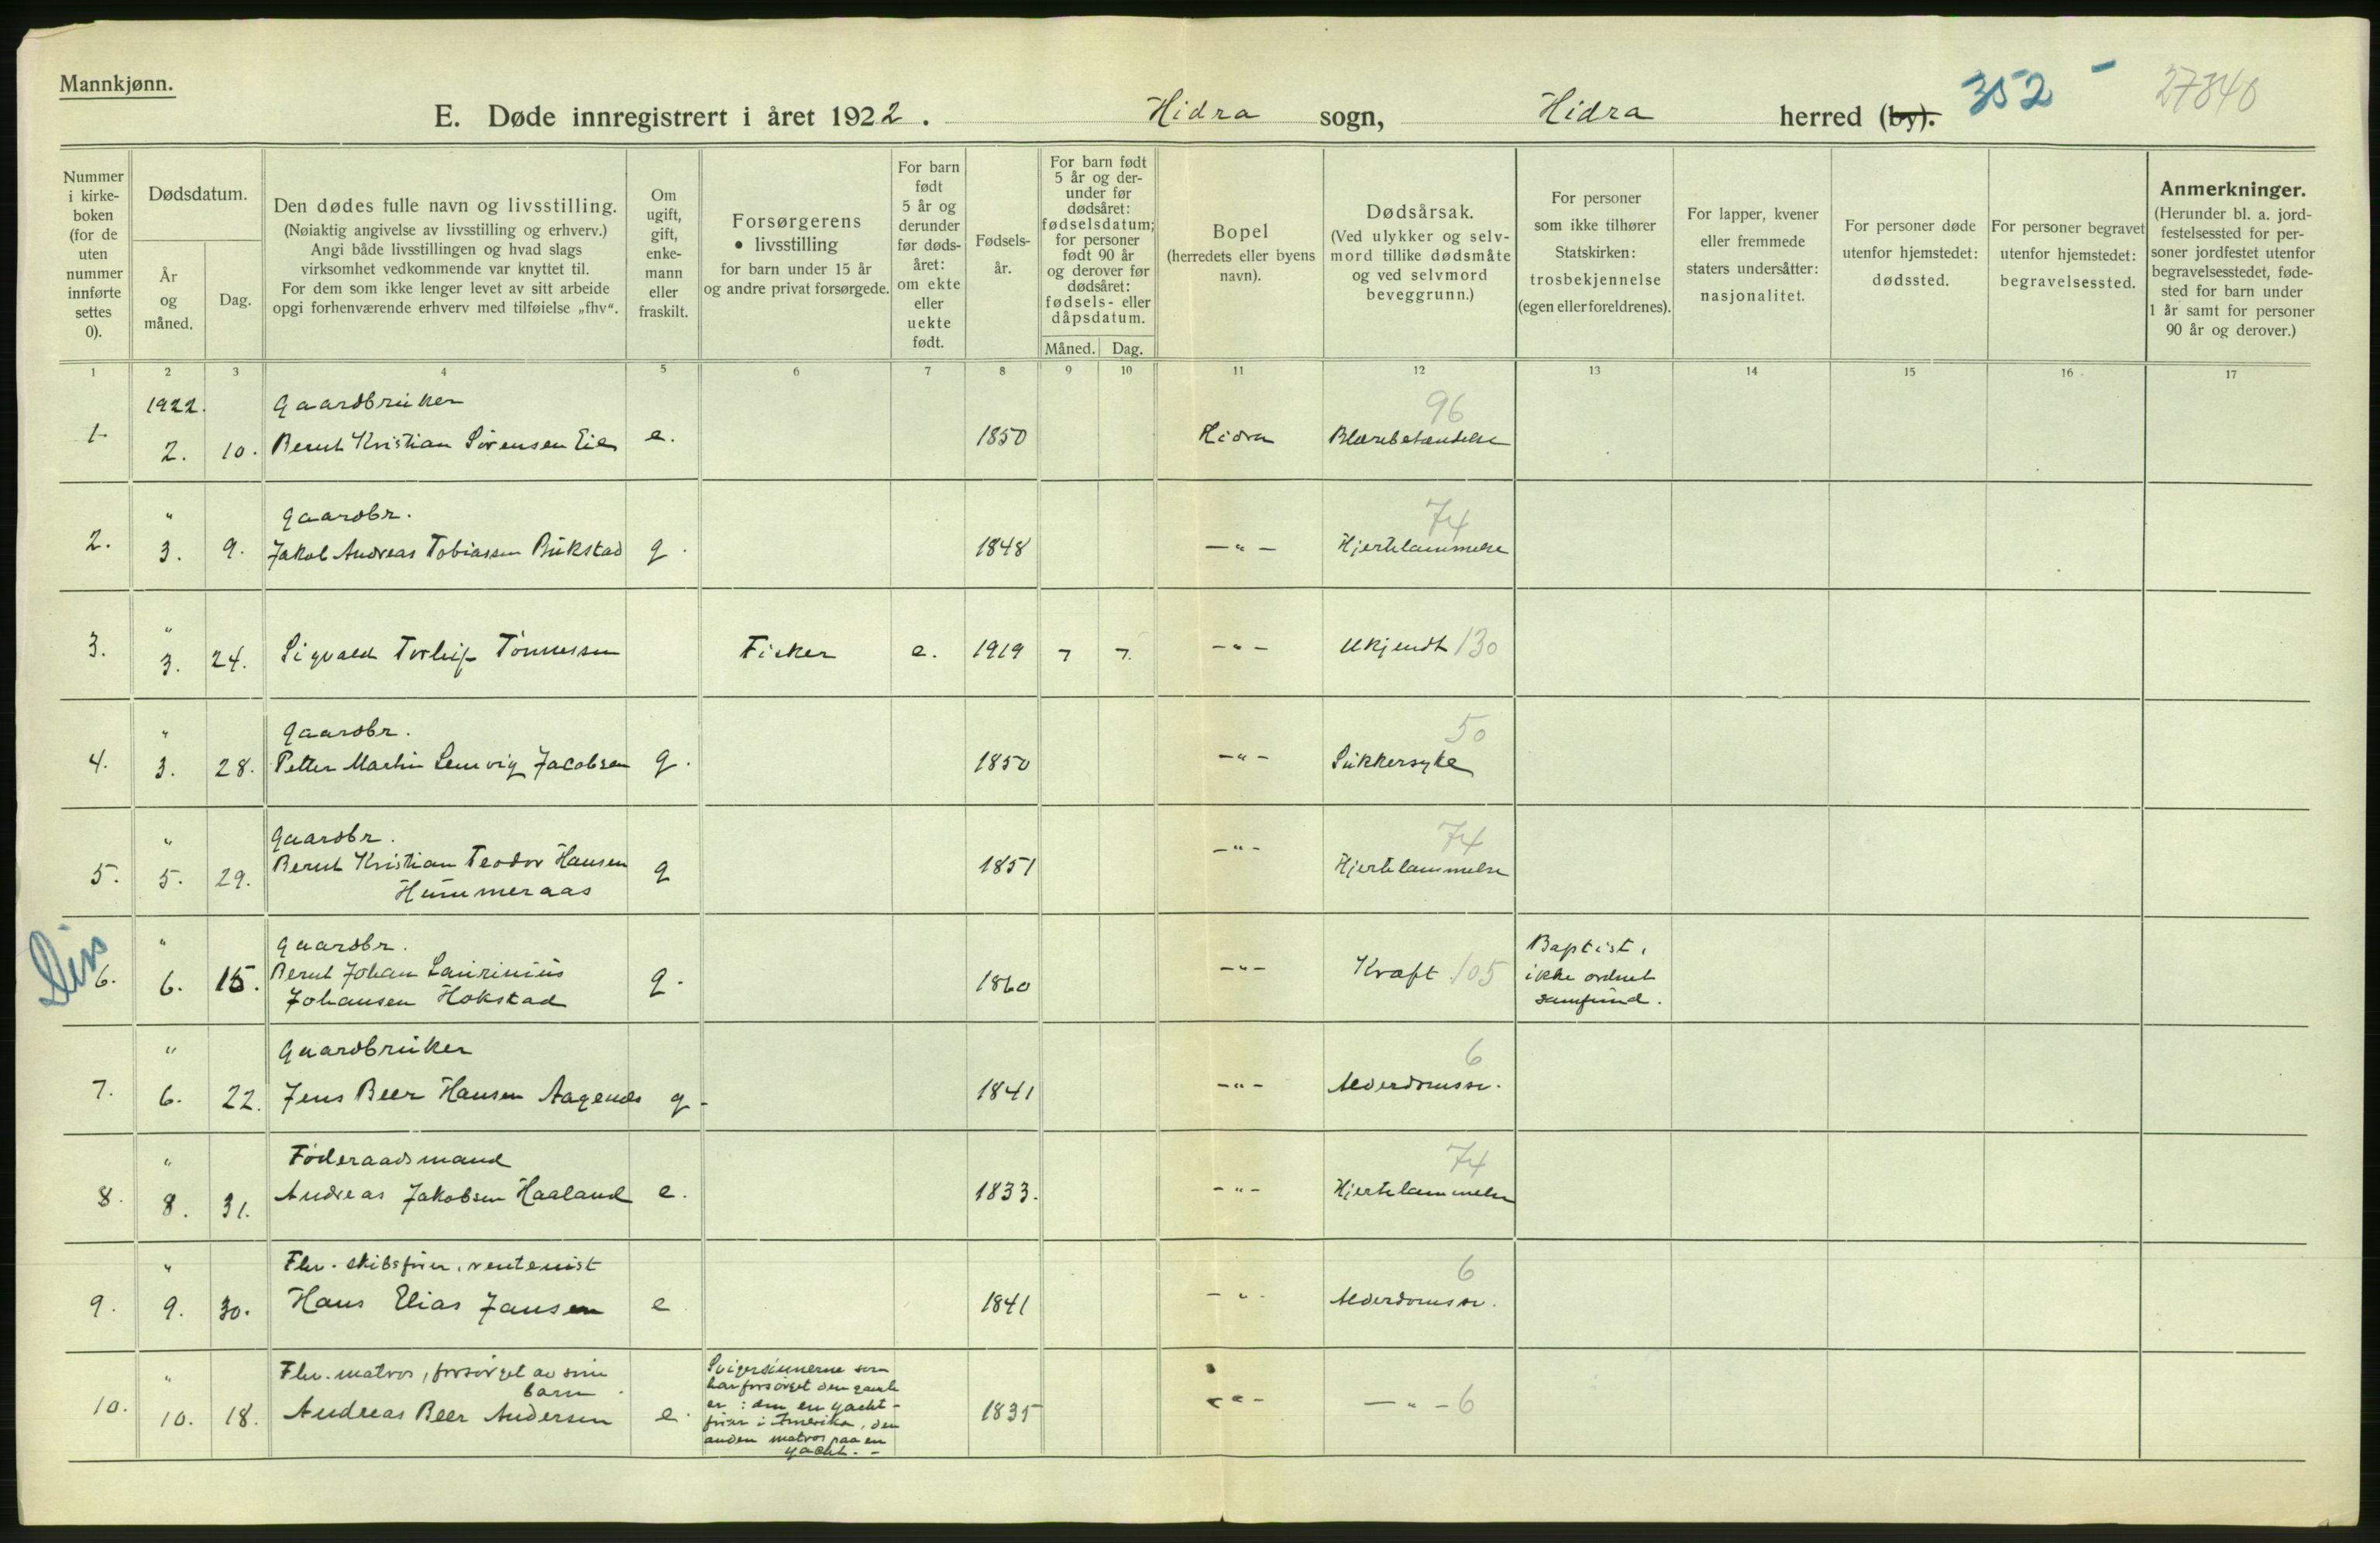 Mannkjønn.
E. Døde innregistrert i året 1922. Hidra sogn, Hidra herred (by). 352 - 27840
Nummer i kirke- boken (for de uten nummer innførte settes 0).
Dødsdatum.
År og måned.
Dag.
Den dødes fulle navn og livsstilling.
(Nøiaktig angivelse av livsstilling og erhverv.)
Angi både livsstillingen og hvad slags
virksomhet vedkommende var knyttet til.
For dem som ikke lenger levet av sitt arbeide
opgi forhenværende erhverv med tilføielse „fhv“.
Om ugift, gift, enke- mann eller fraskilt.
Forsørgerens
livsstilling
for barn under 15 år
og andre privat forsørgede.
For barn født 5 år og derunder før døds- året: om ekte eller uekte født.
Fødsels- år.
For barn født 5 år og der- under før dødsåret: fødselsdatum; for personer født 90 år og derover før dødsåret: fødsels- eller dåpsdatum.
Måned. Dag.
Bopel
(herredets eller byens navn).
Dødsårsak.
(Ved ulykker og selv- mord tillike dødsmåte og ved selvmord beveggrunn.)
For personer som ikke tilhører Statskirken: trosbekjennelse (egen eller foreldrenes).
For lapper, kvener eller fremmede staters undersåtter: nasjonalitet.
For personer døde utenfor hjemstedet: dødssted.
For personer begravet utenfor hjemstedet: begravelsessted.
Anmerkninger.
(Herunder bl. a. jord- festelsessted for per- soner jordfestet utenfor begravelsesstedet, føde- sted for barn under 1 år samt for personer 90 år og derover.)
1 2 3 4 5 6 7 8 9 10 11 12 13 14 15 16 17
1922. Gaardbruker 96
1. 2. 10. Bernt Kristian Sørensen Eie e. 1850 Hidra Blærebetændelse
" Gaardbr. 74
2. 3. 9. Jakob Andreas Tobiassen Bukstad g. 1848 — " — Hjertelammelse
"
3. 3. 24. Sigvald Torleif Tønnessen Fisker e. 1919 7 7. — " — Ukjendt 130
" Gaardbr. 50
4. 3. 28. Petter Martin Lemvig Jacobsen g. 1850 — " — Sukkersyke
" Gaardbr. 74
5. 5. 29. Bernt Kristian Teodor Hansen g 1851 — " — Hjertelammelse
Hummeraas
" Gaardbr. Baptist,
6. 6. 15. Bernt Johan Laurinius g. 1860 — " — Kræft 105 ikke ordnet
Johansen Hokstad samfund.
" Gaardbruker 6
7. 6. 22. Jens Beer Hansen Aagenæs g. 1841 — " — Alderdomssv.
" Føderaadsmand 74
8. 8. 31. Andreas Jakobsen Haaland e. 1833. — " — Hjertelammelse
" Fhv. skibsfører, rentenist 6
9. 9. 30. Hans Elias Jansen e 1841 — " — Alderdomssv.
" Fhv. matros, forsørget av sine barn.
10. 10. 18. Andreas Beer Andersen e. 1835 — " — — " — 6
Svigersønnerne som
har forsørget den gamle
er: den en yacht-
fører i Amerika, den
anden matros paa en
yacht. -